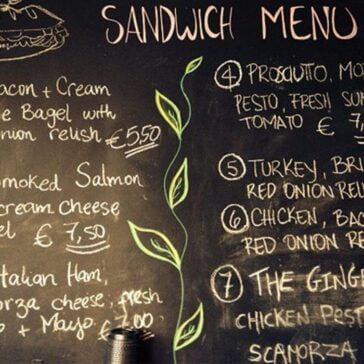 SANDWICH MENU
acon + Cream
e Bagel with
nion relish €5,50
moked Salmon
cream cheese
el € 7,50
talian Ham,
orza cheese, fresh
o + Mayo €7,00
④ PROSCIUTTO, MO
PESTO, FRESH SUN
TOMATO € 7,
⑤ TURKEY, BRI
RED ONION RE
⑥ CHICKEN, BA
RED ONION RE
⑦ THE GING
CHICKEN PEST
SCAMORZA